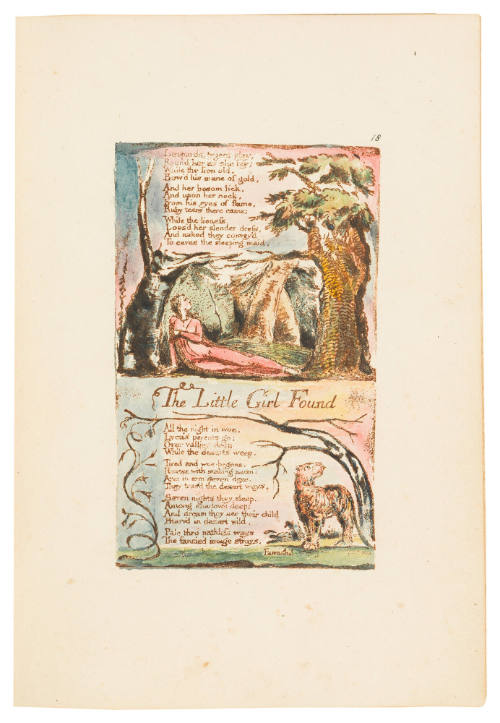 18
Leopards, tygers play,
Round her as she lay;
While the lion old,
Bow'd his mane of gold,
And her bosom lick,
And upon her neck,
From his eyes of flame,
Ruby tears there came;
While the lioness,
Loos'd her slender dress,
And naked they convey'd
To caves the sleeping maid.
The Little Girl Found
All the night in woe,
Lyca's parents go:
Over vallies deep,
While the desarts weep.
Tired and woe-begone,
Hoarse with making moan:
Arm in arm seven days,
They trac'd the desart ways.
Seven nights they sleep,
Among shadows deep:
And dream they see their child
Starv'd in desart wild.
Pale thro pathless ways
The fancied image strays,
Famish'd